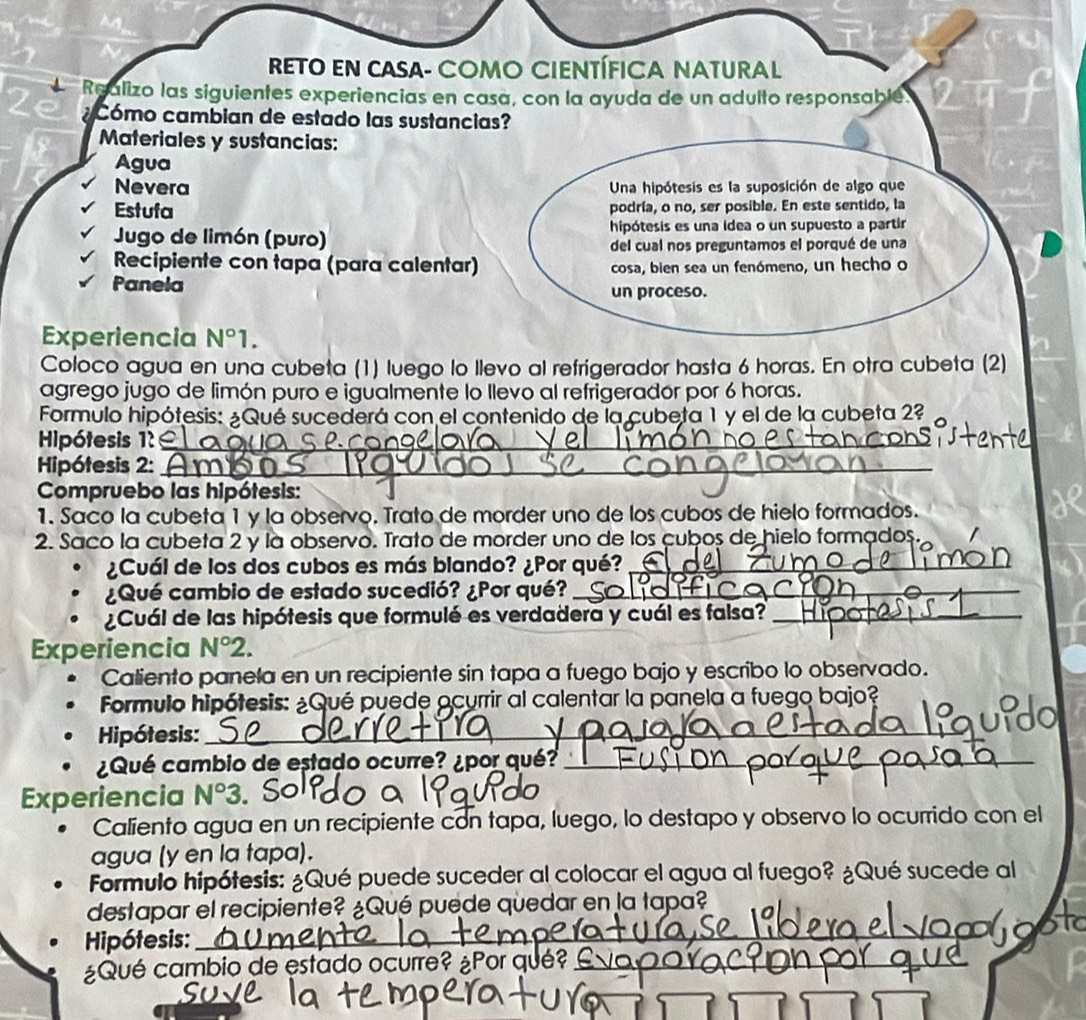 RETO EN CASA- COMO CIENTÍFICA NATURAL
Realizo las siguientes experiencias en casa, con la ayuda de un adulto responsable.
¿Cómo cambian de estado las sustancias?
Materiales y sustancias:
✓ Agua
✓ Nevera
✓ Estufa
✓ Jugo de limón (puro)
✓ Recipiente con tapa (para calentar)
✓ Panela
Una hipótesis es la suposición de algo que
podría, o no, ser posible. En este sentido, la
hipótesis es una idea o un supuesto a partir
del cual nos preguntamos el porqué de una
cosa, bien sea un fenómeno, un hecho o
un proceso.
Experiencia N°1.
Coloco agua en una cubeta (1) luego lo llevo al refrigerador hasta 6 horas. En otra cubeta (2)
agrego jugo de limón puro e igualmente lo llevo al refrigerador por 6 horas.
Formulo hipótesis: ¿Qué sucederá con el contenido de la cubeta 1 y el de la cubeta 2?
Hipótesis 1: el agua se congelara y el limón no es tan consistente
Hipótesis 2: Ambos liquidos se congeloran.
Compruebo las hipótesis:
1. Saco la cubeta 1 y la observo. Trato de morder uno de los cubos de hielo formados.
2. Saco la cubeta 2 y la observo. Trato de morder uno de los cubos de hielo formados.
• ¿Cuál de los dos cubos es más blando? ¿Por qué? El del zumo de limón
• ¿Qué cambio de estado sucedió? ¿Por qué? Solidificación
• ¿Cuál de las hipótesis que formulé es verdadera y cuál es falsa? Hipotesis 1
Experiencia N°2.
• Caliento panela en un recipiente sin tapa a fuego bajo y escribo lo observado.
• Formulo hipótesis: ¿Qué puede ocurrir al calentar la panela a fuego bajo?
• Hipótesis: Se derretira y pasara a estada liquido
• ¿Qué cambio de estado ocurre? ¿por qué? Fusion porque pasa a
Experiencia N°3. Solido a liquido
• Caliento agua en un recipiente con tapa, luego, lo destapo y observo lo ocurrido con el
agua (y en la tapa).
• Formulo hipótesis: ¿Qué puede suceder al colocar el agua al fuego? ¿Qué sucede al
destapar el recipiente? ¿Qué puede quedar en la tapa?
• Hipótesis: aumenta la temperatura, se libera el vapor, gota
• ¿Qué cambio de estado ocurre? ¿Por qué? Evaporacion por que
suve la temperatura